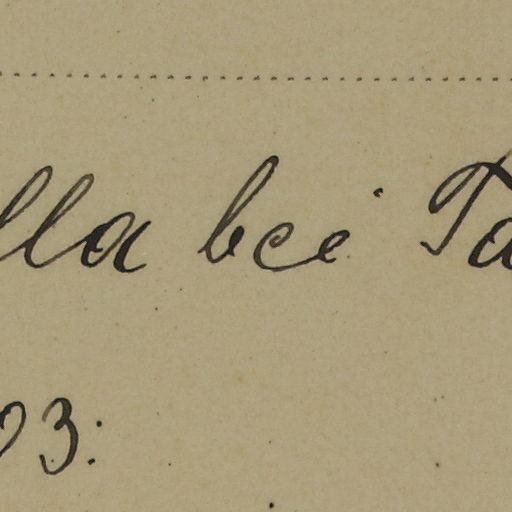 lla bei Ta
03.